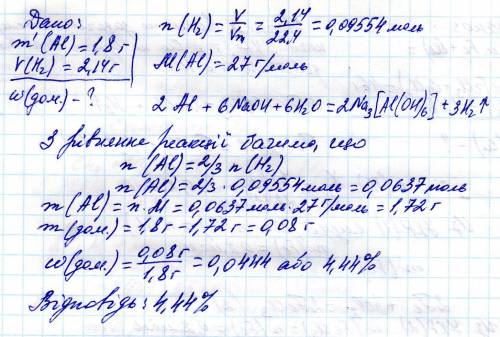 Дано:
m'(Al) = 1,8 г
V(H₂) = 2,14 г
ω(дом.) - ?
n(H₂) = V/Vn = 2,14/22,4 = 0,09554 моль
M(Al) = 27 г/моль
2 Al + 6 NaOH + 6 H₂O = 2 Na₃[Al(OH)₆] + 3 H₂↑
З рівняння реакції бачимо, що
n(Al) = 2/3 n(H₂)
n(Al) = 2/3 · 0,09554 моль = 0,0637 моль
m(Al) = n·M = 0,0637 моль · 27 г/моль = 1,72 г
m(дом.) = 1,8 г - 1,72 г = 0,08 г
ω(дом.) = 0,08 г/1,8 г = 0,0444 або 4,44%
Відповідь: 4,44%